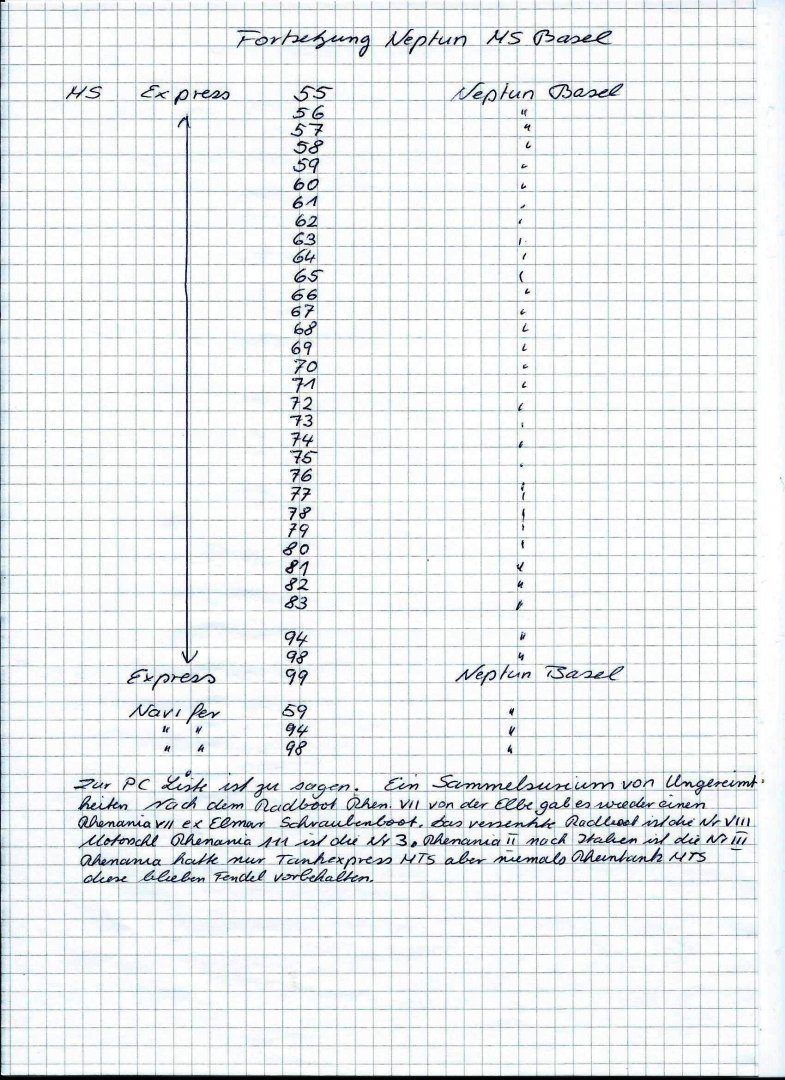 Fortsetzung Neptun MS Basel
MS Express 55 Neptun Basel
56 "
57 "
58 "
59 "
60 "
61 "
62 "
63 "
64 "
65 "
66 "
67 "
68 "
69 "
70 "
71 "
72 "
73 "
74 "
75 "
76
77 "
78 "
79 "
80 "
81 "
82 "
83 "
94 "
98 "
Express 99 Neptun Basel
Navifer 59 "
" " 94 "
" " 98 "
Zur PC Liste ist zu sagen. Ein Sammelsurium von Ungereimt-
heiten Nach dem Radboot Rhen. VII von der Elbe gab es wieder einen
Rhenania VII ex Elmar Schraubenboot. Das versenkte Radboot ist die Nr VIII
Motorschl Rhenania 111 ist die Nr 3. Rhenania II nach Italien ist die Nr III
Rhenania hatte nur Tankexpress MTS aber niemals Rheintank MTS
diese blieben Fendel vorbehalten.